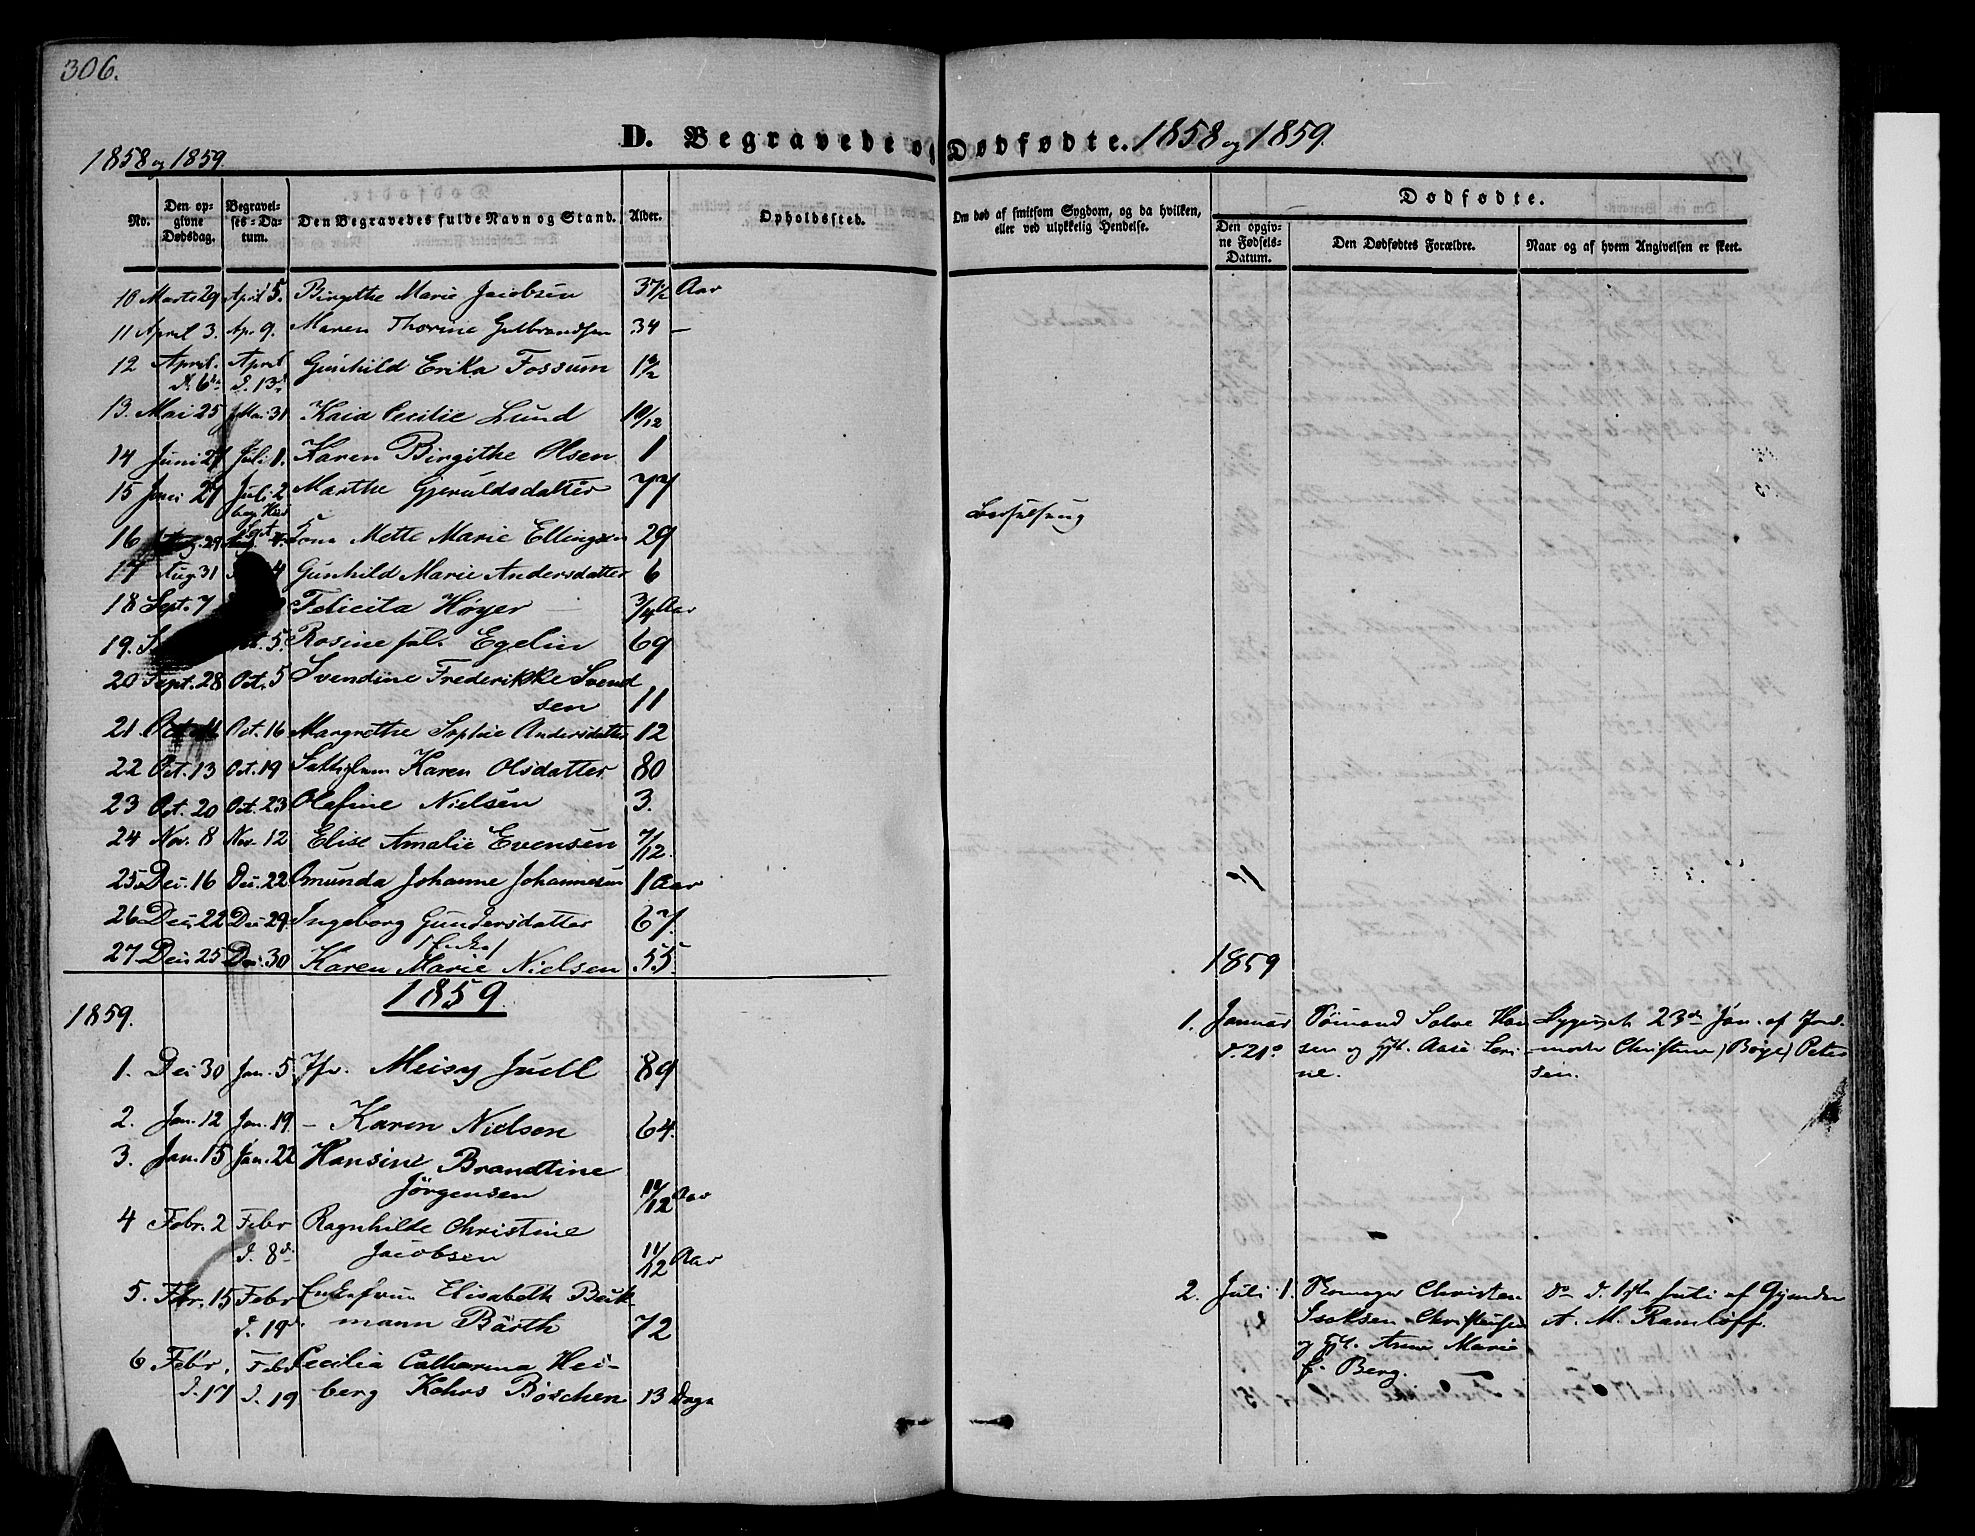 306.
D. Begravede og Dødfødte. 1858 og 1859.
1858 og 1859
No.
Den opgivne Dødsdag.
Begravelses-Datum.
Den Begravedes fulde Navn og Stand.
Alder.
Opholdssted.
Om død af smitsom Sygdom, og da hvilken, eller ved ulykkelig Hendelse.
Dødfødte.
Den opgivne Fødsels-Datum.
Den Dødfødtes Forældre.
Naar og af hvem Angivelsen er skeet.
10 Marts 29 April 5. Birgithe Marie Jacobsen 37½ Aar
11 April 3. Ap. 9. Maren Thorine Gulbrandsen 34 —
12 April April Gunhild Erika Fossum
d. 6te d. 13d
13. Mai 25 Mai 31 Kaia Cecilie Lund 10/12
14 Juni 27 Juli 1. Karen Birgithe Olsen 1
15 Juni 27 Juli 2 Marthe Gjeruldsdatter 77
16 Aug. 29 Sept. 4. Kone Mette Marie Ellingsen 29 Barselseng
17 Aug 31 4 Gunhild Marie Andersdatter 6
18 Sept. 7 Felicita Høyer — 3/4 Aar
19. 5 Rosine Egelin 69
20 Sept. 28 Oct. 5 Svendine Frederikke Svend
sen 11
21. Oct. 11 Oct. 16 Margrethe Sophie Andersdatter 12
22 Oct. 13 Oct. 19 Karen Olsdatter 80
23 Oct. 20 Oct. 23 Olefine Nielsen 3.
24 Nov. 8 Nov. 12 Elise Amalie Evensen 7/12
25. Dec. 16 Dec. 22 Omunda Johanne Johannesen 1 Aar
26 Dec. 22 Dec 29. Ingeborg Gundersdatter 67.
27 Dec. 25 Dec. 30 Karen Marie Nielsen 55
1859.
1859
1859
1. Dec 30 Jan. 5 Juell 89
2. Jan. 12 Jan. 19. – Karen Nielsen 64.
3. Jan. 15 Jan. 22 Hansine Brandtine
Jörgensen 11/12 Aar
4 Febr. 2 Febr Ragnhilde Christine
d. 8d Jacobsen 11/12 Aar
5. Febr. 15 Febr Enkefrue Elisabeth Beik
d. 19d mann Barth 72
6 Febr. Febr Cecilia Catharina Hei-
d. 17 d. 19 berg Kahrs Böschen 13 Dage
1. Januar Tømmand Salve Han
d. 21d sen og Hst. Aase Seri
ne.
23de Jan. af Jord-
moder Christine (Boye) Peter
sen.
2. Juli 1. Christen
Isaksen Christensen
og Hst. Anne Marie
f. Berg.
do d. 1ste Juli af
A. M. Ramløff.